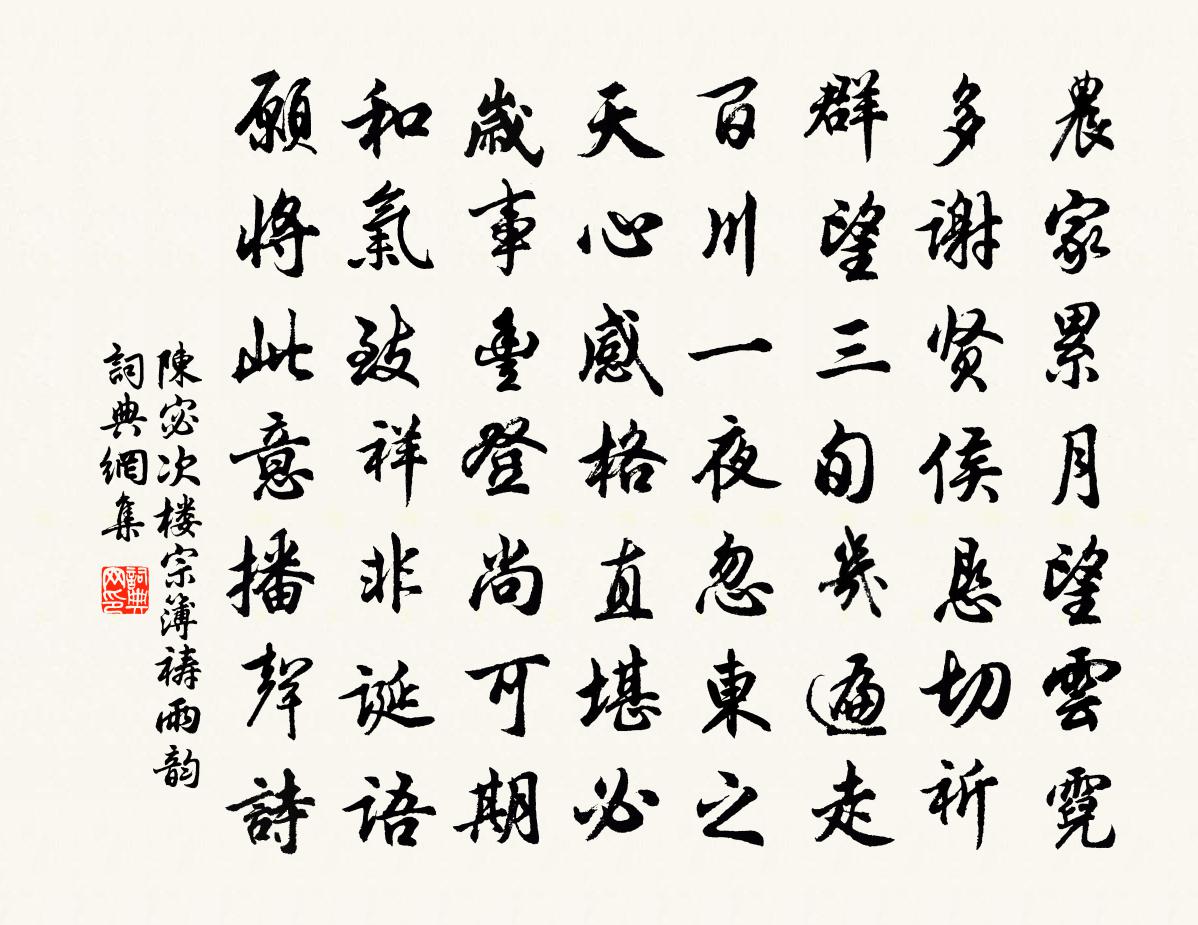 農家累月望雲霓
多謝贤侯恳切祈
群望三旬幾遍走
百川一夜忽東之
天心感格直堪必
歲事豊登尚可期
和氣致祥非诞语
願將此意播聲詩
陳宓次楼宗簿禱雨韵
詞典網集
詞典网印